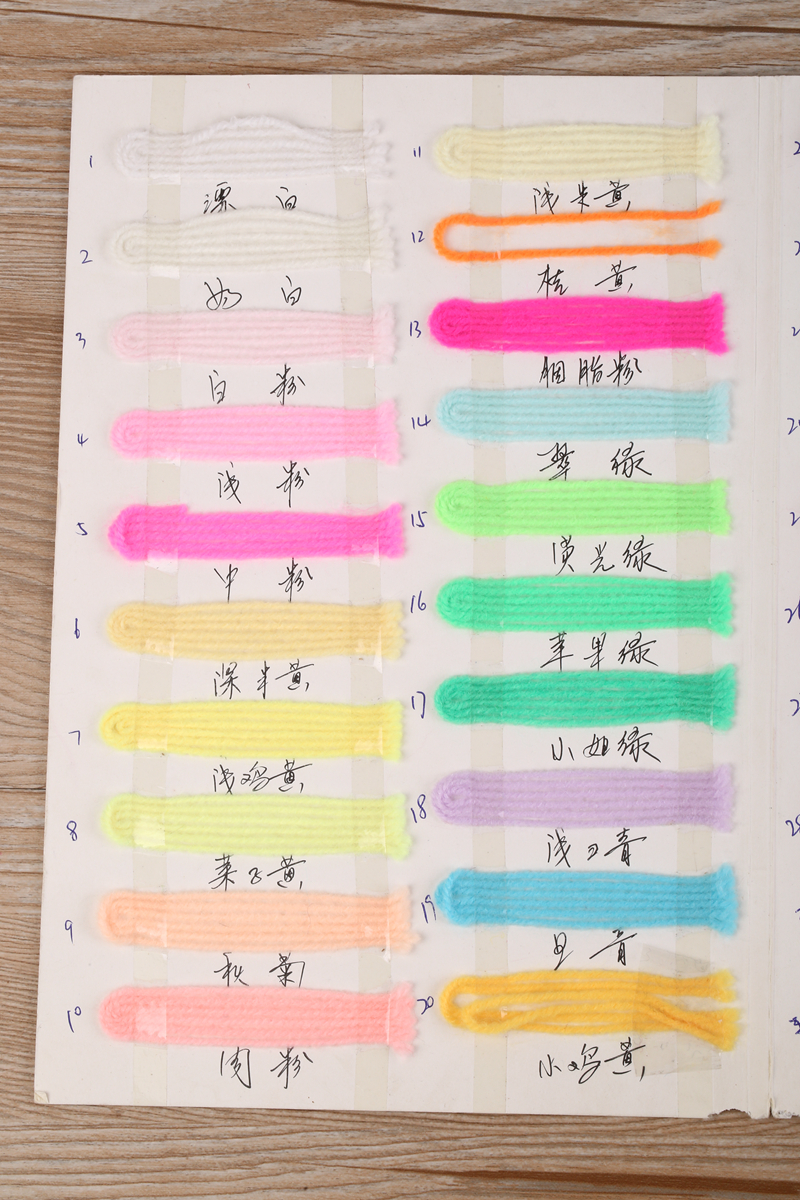 1
漂白
2
奶白
3
白粉
4
浅粉
5
中粉
6
深米黄
7
浅鸡黄
8
菜子黄
9
秋菊
10
肉粉
11
浅米黄
12
桔黄
13
胭脂粉
14
翠绿
15
荧光绿
16
苹果绿
17
小姐绿
18
浅习青
19
青
20
小鸡黄